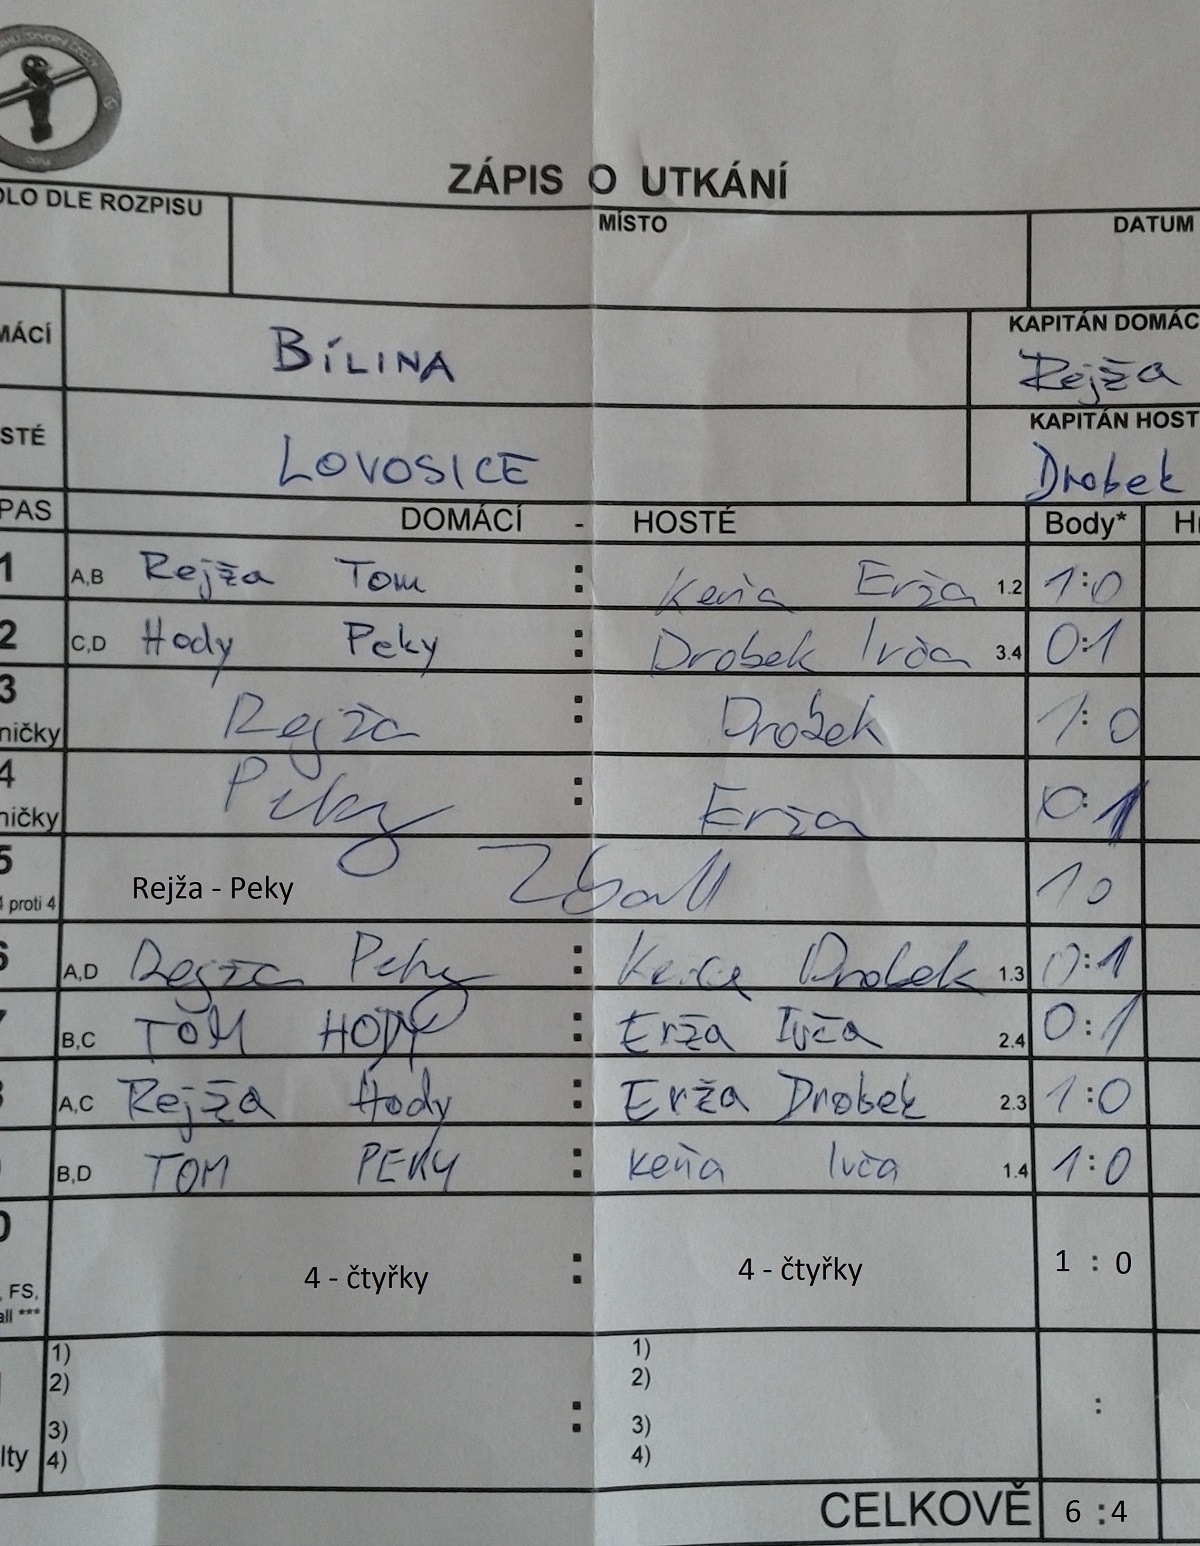 ZÁPIS O UTKÁNÍ
DLO DLE ROZPISU MÍSTO DATUM
MÁCÍ BÍLINA KAPITÁN DOMÁC
Rejža
STÉ LOVOSICE KAPITÁN HOST
Drobek
PAS DOMÁCÍ - HOSTÉ Body*
1 A,B Rejža Tom : Keňa Erža 1.2 1:0
2 C,D Hody Peky : Drobek Ivča 3.4 0:1
3 ničky Rejža : Drobek 1:0
4 ničky Peky : Erža 0:1
5 proti 4 Rejža - Peky 2ball 1 0
6 A,D Rejža Peky : Keňa Drobek 1.3 0:1
7 B,C TOM HODY : Erža Ivča 2.4 0:1
A,C Rejža Hody : Erža Drobek 2.3 1:0
B,D TOM PEKY : Keňa Ivča 1.4 1:0
0 4 - čtyřky : 4 - čtyřky 1 : 0
, FS,
all ***
1) 1)
2) 2)
: :
3) 3)
lty 4) 4)
CELKOVĚ 6 : 4